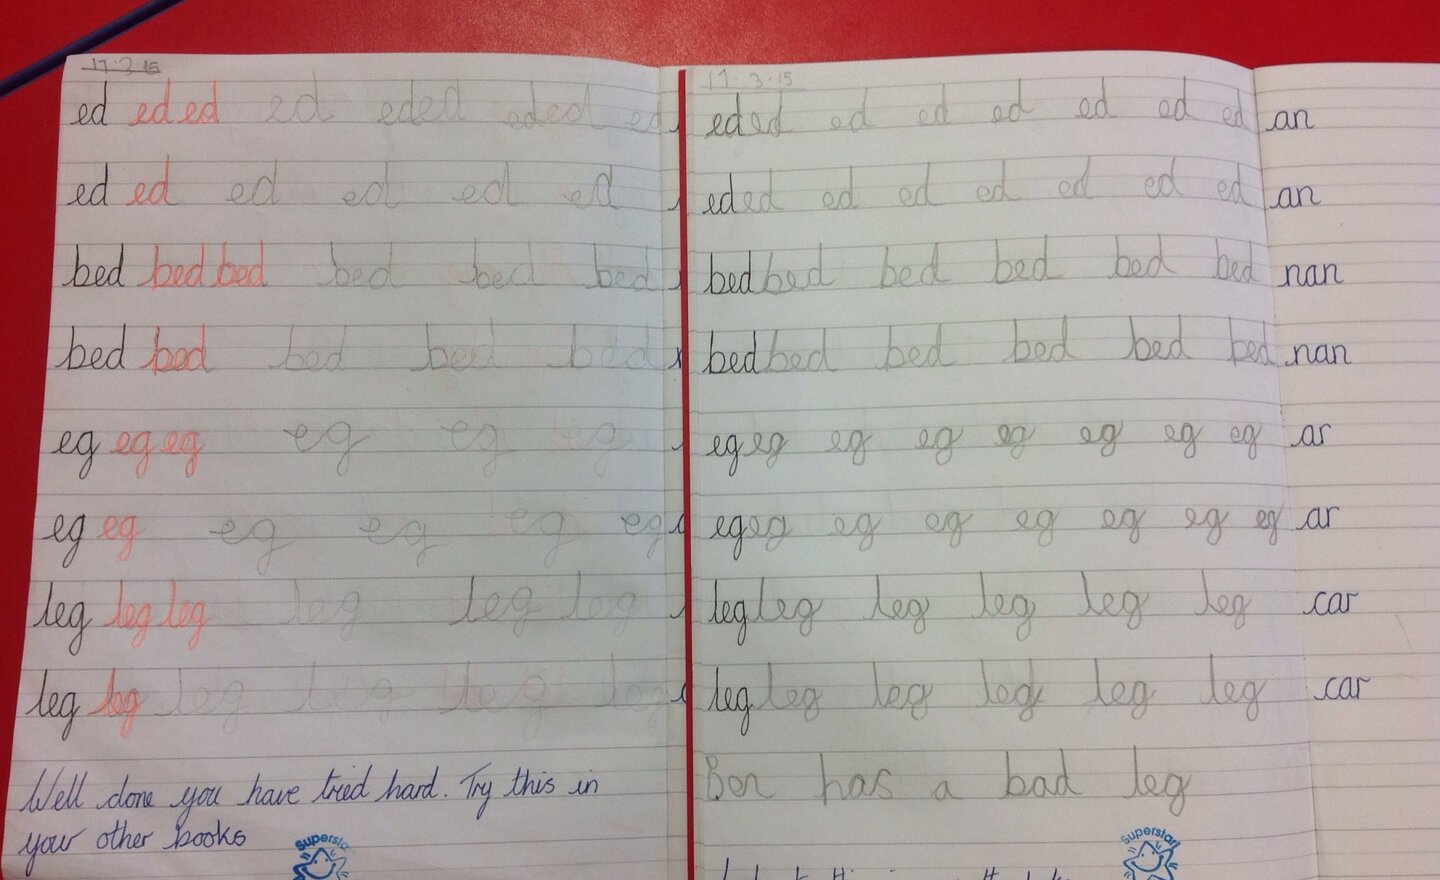 17.3.15
ed ed ed ed ed ed ed ed ed
ed ed ed ed ed ed
bed bed bed bed bed bed
bed bed bed bed bed
eg eg eg eg eg eg
eg eg eg eg eg eg
leg leg leg leg leg leg
leg leg leg leg leg leg
Well done you have tried hard. Try this in
your other books
Superstar
17.3.15
ed ed ed ed ed ed ed ed
ed ed ed ed ed ed ed ed
bed bed bed bed bed bed
bed bed bed bed bed bed
eg eg eg eg eg eg eg eg
eg eg eg eg eg eg eg eg
leg leg leg leg leg leg
leg leg leg leg leg leg
Ben has a bad leg
Superstar
an
an
nan
nan
ar
ar
car
car